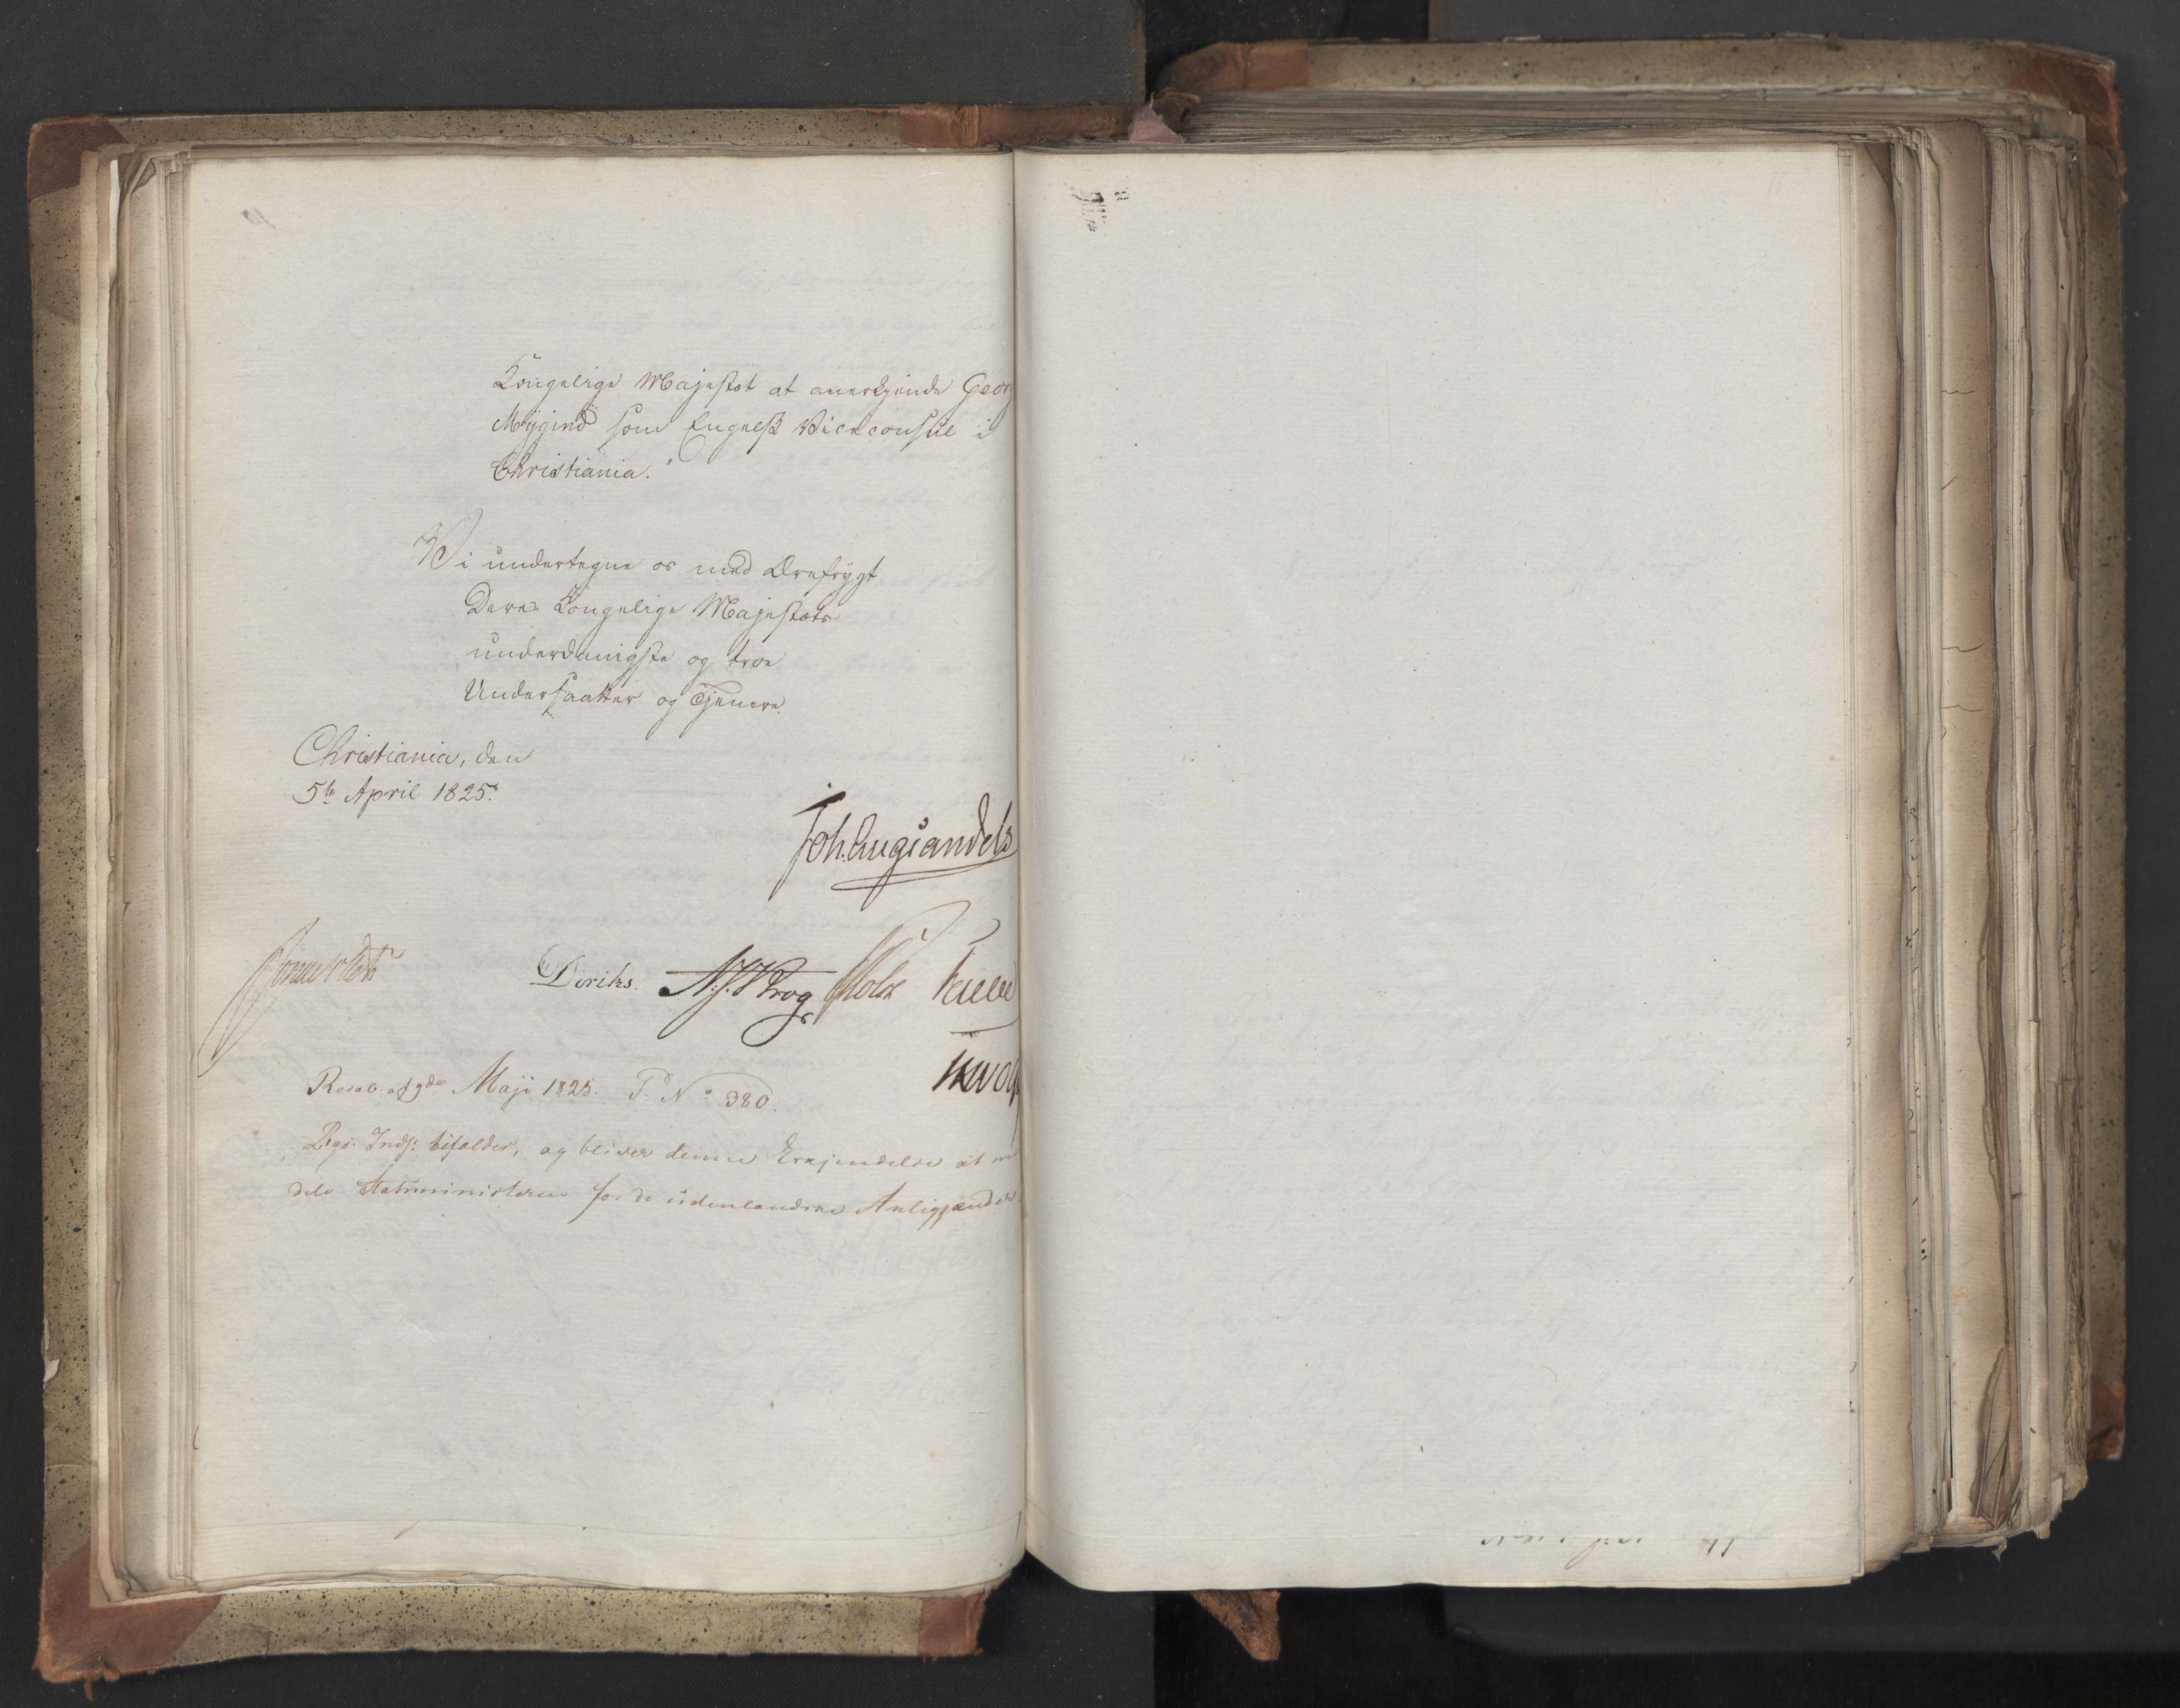 Kongelige Majestæt at anerkjende Georg
Mygind som Engelsk Viceconsul i
Christiania."
Vi undertegne os med Ærefrygt
Deres Kongelige Majestæts
underdanigste og troe
Undersaatter og Tjenere.
Christiania, den
5te April 1825.
Joh. Aug. Sandels
Diriks. N.J. Krog Holst
Resol. af 9de Maji 1825. P. No 380.
Rgs. Inds: bifaldes, og bliver denne Erkjendelse at
dele Statsministeren for de udenlandske Anliggender